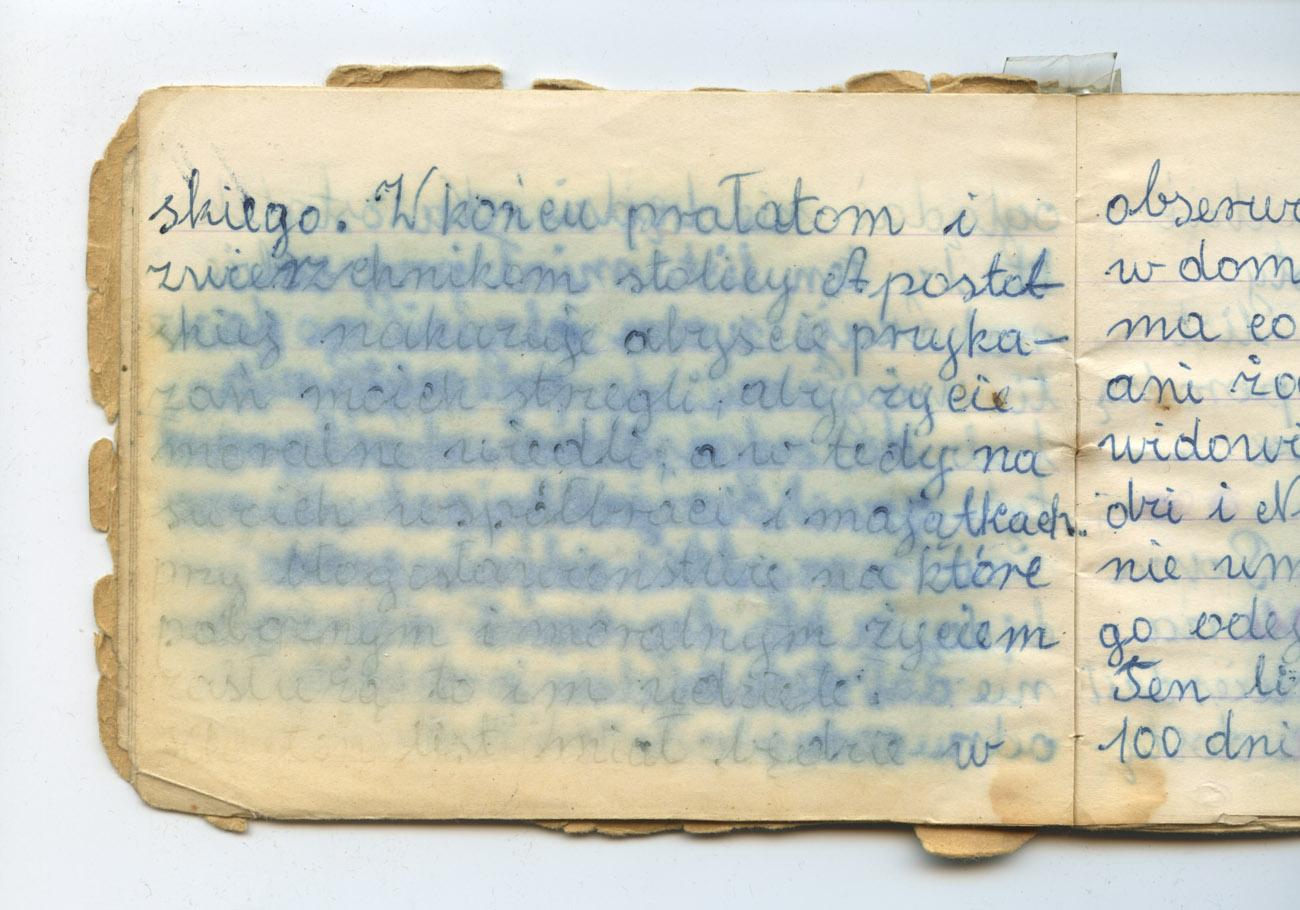 skiego. W końcu prałatom i
zwierzchnikom stolicy Apostol
skiej nakazuje abyście przyka-
zań moich strzegli, aby życie
moralne wiedli, a w tedy na
swoich współbraci i majątkach.
przy błogosławieństwie na które
pobożnym i moralnym życiem
zasłużą to im udzielę.
ten list miał będzie w
obserw
w dom
ma co
ani ża
widowi
dzi i N
nie um
go odes
Ten li
100 dni